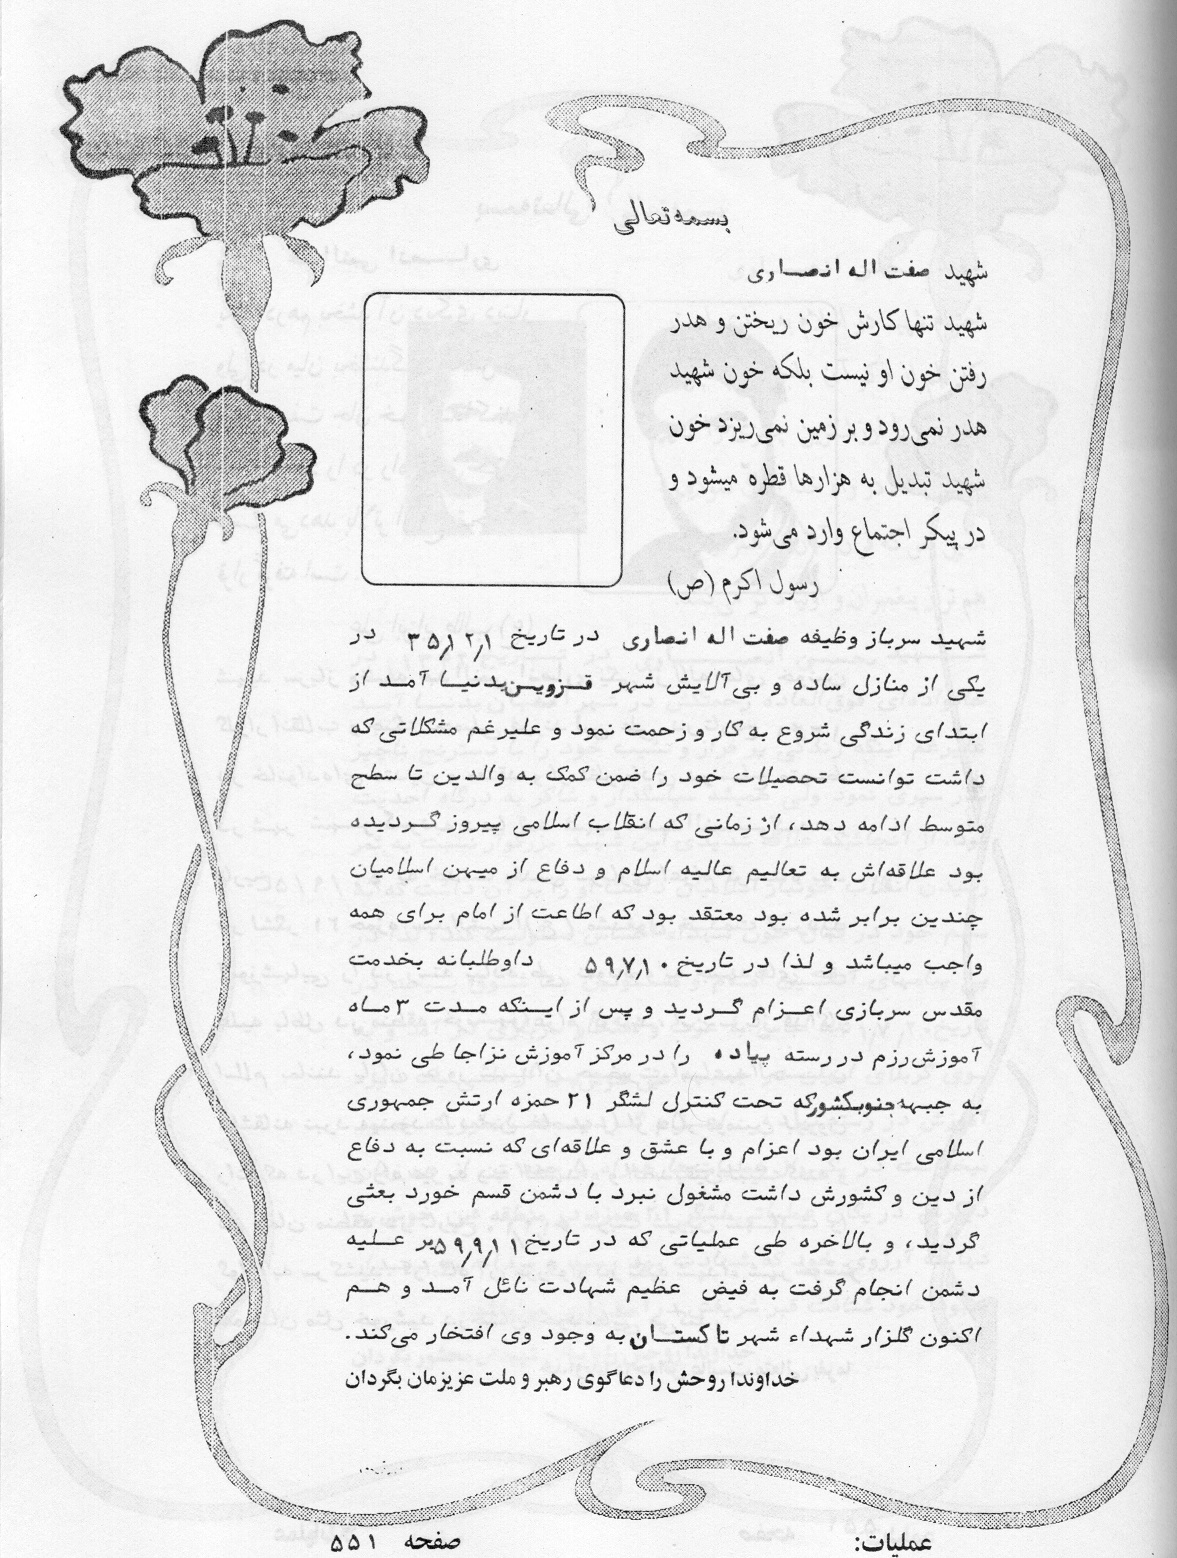 بسمه تعالی
شهید صفت اله انصاری
شهید تنها کارش خون ریختن و هدر
رفتن خون او نیست بلکه خون شهید
هدر نمی‌رود و بر زمین نمی‌ریزد خون
شهید تبدیل به هزارها قطره میشود و
در پیکر اجتماع وارد می‌شود.
رسول اکرم (ص)
شهید سرباز وظیفه صفت اله انصاری در تاریخ ۳۵٫۱۲٫۱ در
یکی از منازل ساده و بی‌آلایش شهر قزوین بدنیا آمد از
ابتدای زندگی شروع به کار و زحمت نمود و علیرغم مشکلاتی که
داشت توانست تحصیلات خود را ضمن کمک به والدین تا سطح
متوسط ادامه دهد، از زمانی که انقلاب اسلامی پیروز گردیده
بود علاقه‌اش به تعالیم عالیه اسلام و دفاع از میهن اسلامیان
چندین برابر شده بود معتقد بود که اطاعت از امام برای همه
واجب میباشد و لذا در تاریخ ۵۹٫۷٫۱۰ داوطلبانه بخدمت
مقدس سربازی اعزام گردید و پس از اینکه مدت ۳ ماه
آموزش رزم در رسته پیاده را در مرکز آموزش نزاجا طی نمود،
به جبهه جنوبکشور که تحت کنترل لشگر ۲۱ حمزه ارتش جمهوری
اسلامی ایران بود اعزام و با عشق و علاقه‌ای که نسبت به دفاع
از دین و کشورش داشت مشغول نبرد با دشمن قسم خورد بعثی
گردید، و بالاخره طی عملیاتی که در تاریخ ۵۹٫۹٫۱۱ بر علیه
دشمن انجام گرفت به فیض عظیم شهادت نائل آمد و هم
اکنون گلزار شهداء شهر تاکستان به وجود وی افتخار می‌کند.
خداوندا روحش را دعاگوی رهبر و ملت عزیزمان بگردان
عملیات: صفحه ۵۵۱